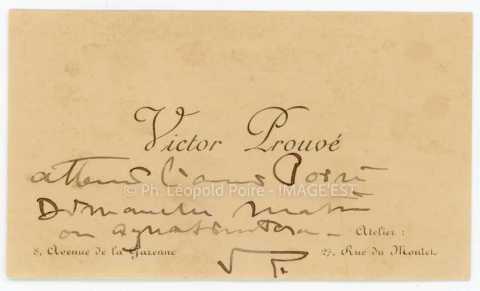 Victor Prouvé
attend l'ami Poiré
© Ph. Léopold Poiré - IMAGE'EST
Dimanche matin
on
Atelier :
8, Avenue de la Garenne
27, Rue du Montet
V. P.